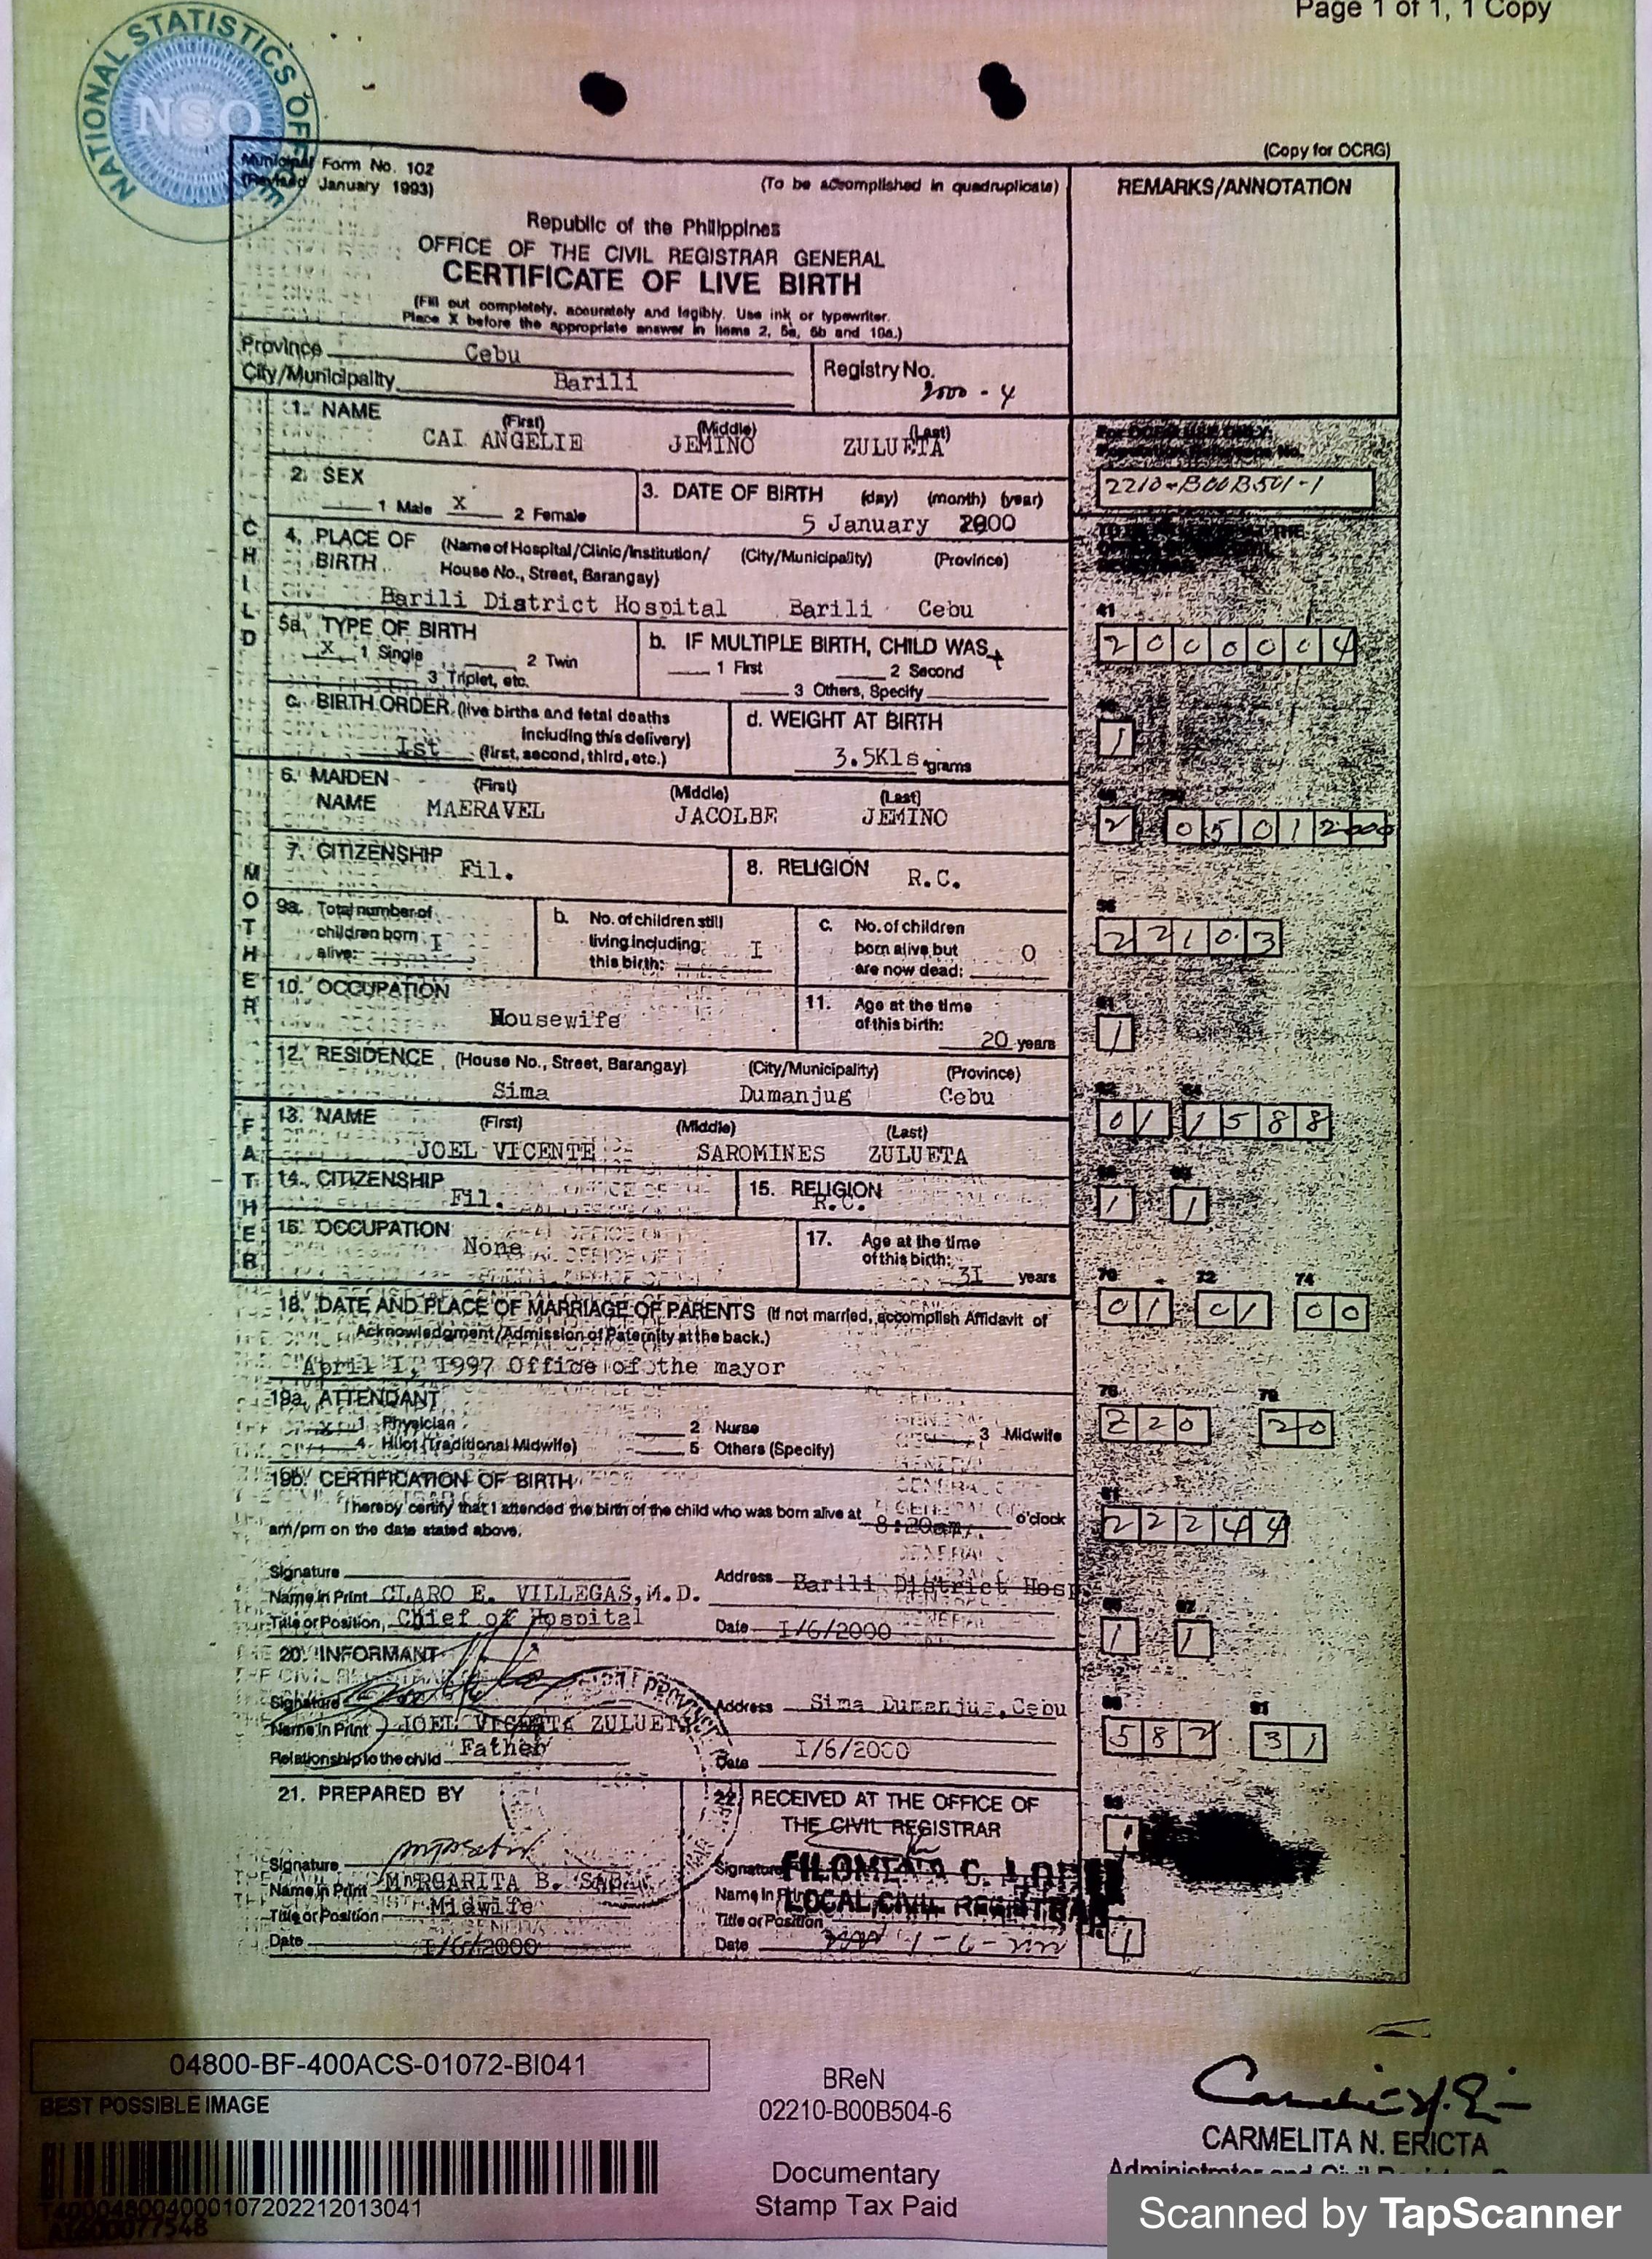 Page 1 of 1, 1 Copy
NATIONAL STATISTICS OFFICE
NSO
(Copy for OCRG)
Municipal Form No. 102
(Revised January 1993)
(To be accomplished in quadruplicate)
REMARKS/ANNOTATION
Republic of the Philippines
OFFICE OF THE CIVIL REGISTRAR GENERAL
CERTIFICATE OF LIVE BIRTH
(Fill out completely, accurately and legibly. Use ink or typewriter.
Place X before the appropriate answer in items 2, 5a, 5b and 19a.)
Province Cebu
City/Municipality Barili
Registry No.
2000 - 4
CHILD
1. NAME (First) (Middle) (Last)
CAI ANGELIE JEMINO ZULUETA
For OCRG USE ONLY:
Population Reference No.
2210-B00B501-1
2. SEX
1 Male X 2 Female
3. DATE OF BIRTH (day) (month) (year)
5 January 2000
4. PLACE OF BIRTH (Name of Hospital/Clinic/Institution/ (City/Municipality) (Province)
House No., Street, Barangay)
Barili District Hospital Barili Cebu
5a. TYPE OF BIRTH
X 1 Single 2 Twin
3 Triplet, etc.
b. IF MULTIPLE BIRTH, CHILD WAS
1 First 2 Second
3 Others, Specify
41
2000004
c. BIRTH ORDER (live births and fetal deaths
including this delivery)
Ist (first, second, third, etc.)
d. WEIGHT AT BIRTH
3.5Kls grams
1
MOTHER
6. MAIDEN NAME (First) (Middle) (Last)
MAERAVEL JACOLBE JEMINO
2 05012000
7. CITIZENSHIP Fil.
8. RELIGION R.C.
9a. Total number of
children born
alive: I
b. No. of children still
living including
this birth: I
c. No. of children
born alive but
are now dead: 0
56
22103
10. OCCUPATION
Housewife
11. Age at the time
of this birth:
20 years
61
1
12. RESIDENCE (House No., Street, Barangay) (City/Municipality) (Province)
Sima Dumanjug Cebu
62 64
01 1588
FATHER
13. NAME (First) (Middle) (Last)
JOEL VICENTE SAROMINES ZULUETA
14. CITIZENSHIP
Fil.
15. RELIGION
R.C.
1 1
16. OCCUPATION
None
17. Age at the time
of this birth:
3I years
70 72 74
01 01 00
18. DATE AND PLACE OF MARRIAGE OF PARENTS (If not married, accomplish Affidavit of
Acknowledgment/Admission of Paternity at the back.)
April I, 1997 Office of the mayor
19a. ATTENDANT
x 1 Physician 2 Nurse 3 Midwife
4 Hilot (Traditional Midwife) 5 Others (Specify)
76 79
220 20
19b. CERTIFICATION OF BIRTH
I hereby certify that I attended the birth of the child who was born alive at 8:20am o'clock
am/pm on the date stated above.
81
22244
Signature
Name in Print CLARO E. VILLEGAS, M.D.
Title or Position Chief of Hospital
Address Barili District Hosp.
Date I/6/2000
1 1
20. INFORMANT
Signature
Name in Print JOEL
ZULUETA
Relationship to the child Father
Address Sima Dumanjug, Cebu
Date I/6/2000
91
582 31
21. PREPARED BY
Signature
Name in Print MARGARITA B.
Title or Position Midwife
Date I/6/2000
22. RECEIVED AT THE OFFICE OF
THE CIVIL REGISTRAR
Signature
FILOMENA C.
Name in Print
LOCAL CIVIL REGISTRAR
Title or Position
Date 1-6-2000
1
1
04800-BF-400ACS-01072-BI041
BEST POSSIBLE IMAGE
T400048004000107202212013041
A1400077548
BReN
02210-B00B504-6
Documentary
Stamp Tax Paid
CARMELITA N. ERICTA
Scanned by TapScanner